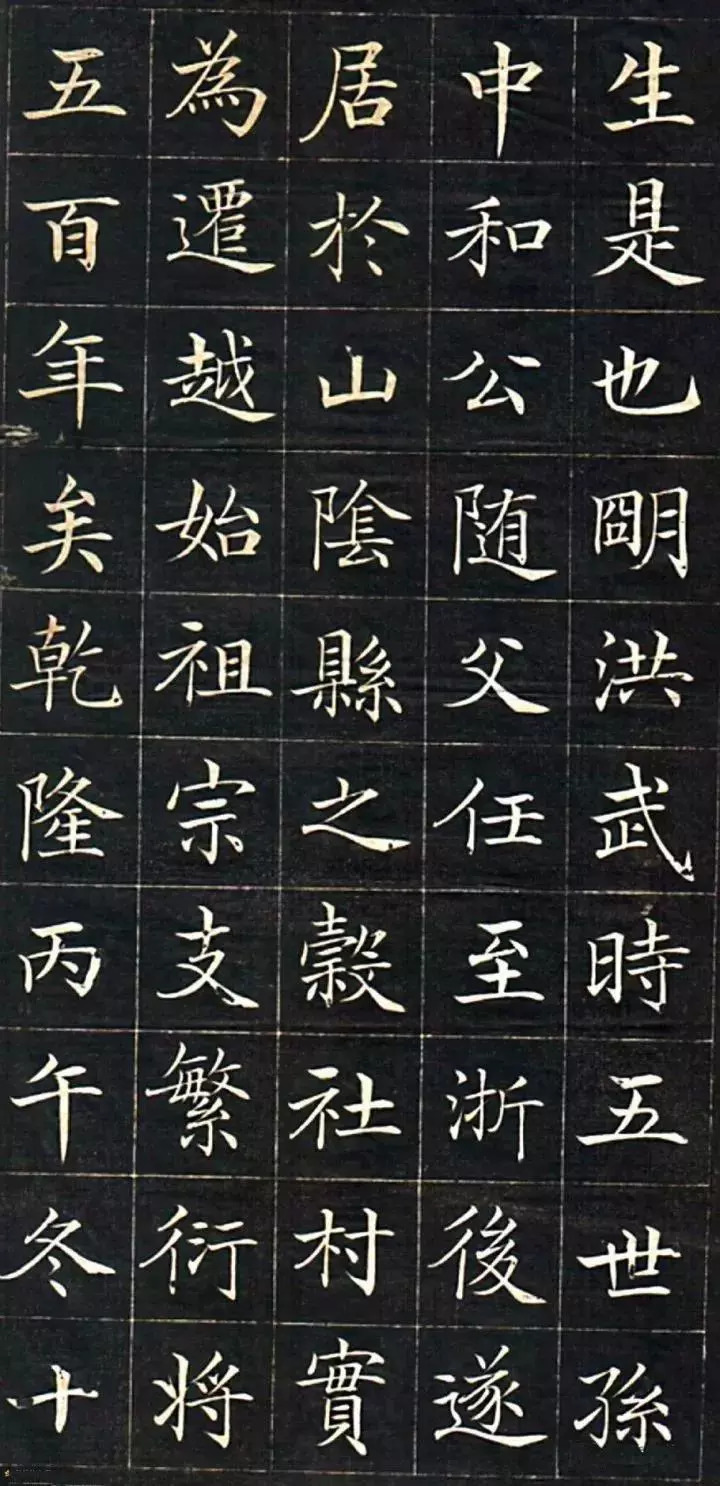 生是也朙洪武時五世孫
中和公随父任至浙後遂
居於山陰縣之糓社村實
為遷越始祖宗支繁衍將
五百年矣乾隆丙午冬十